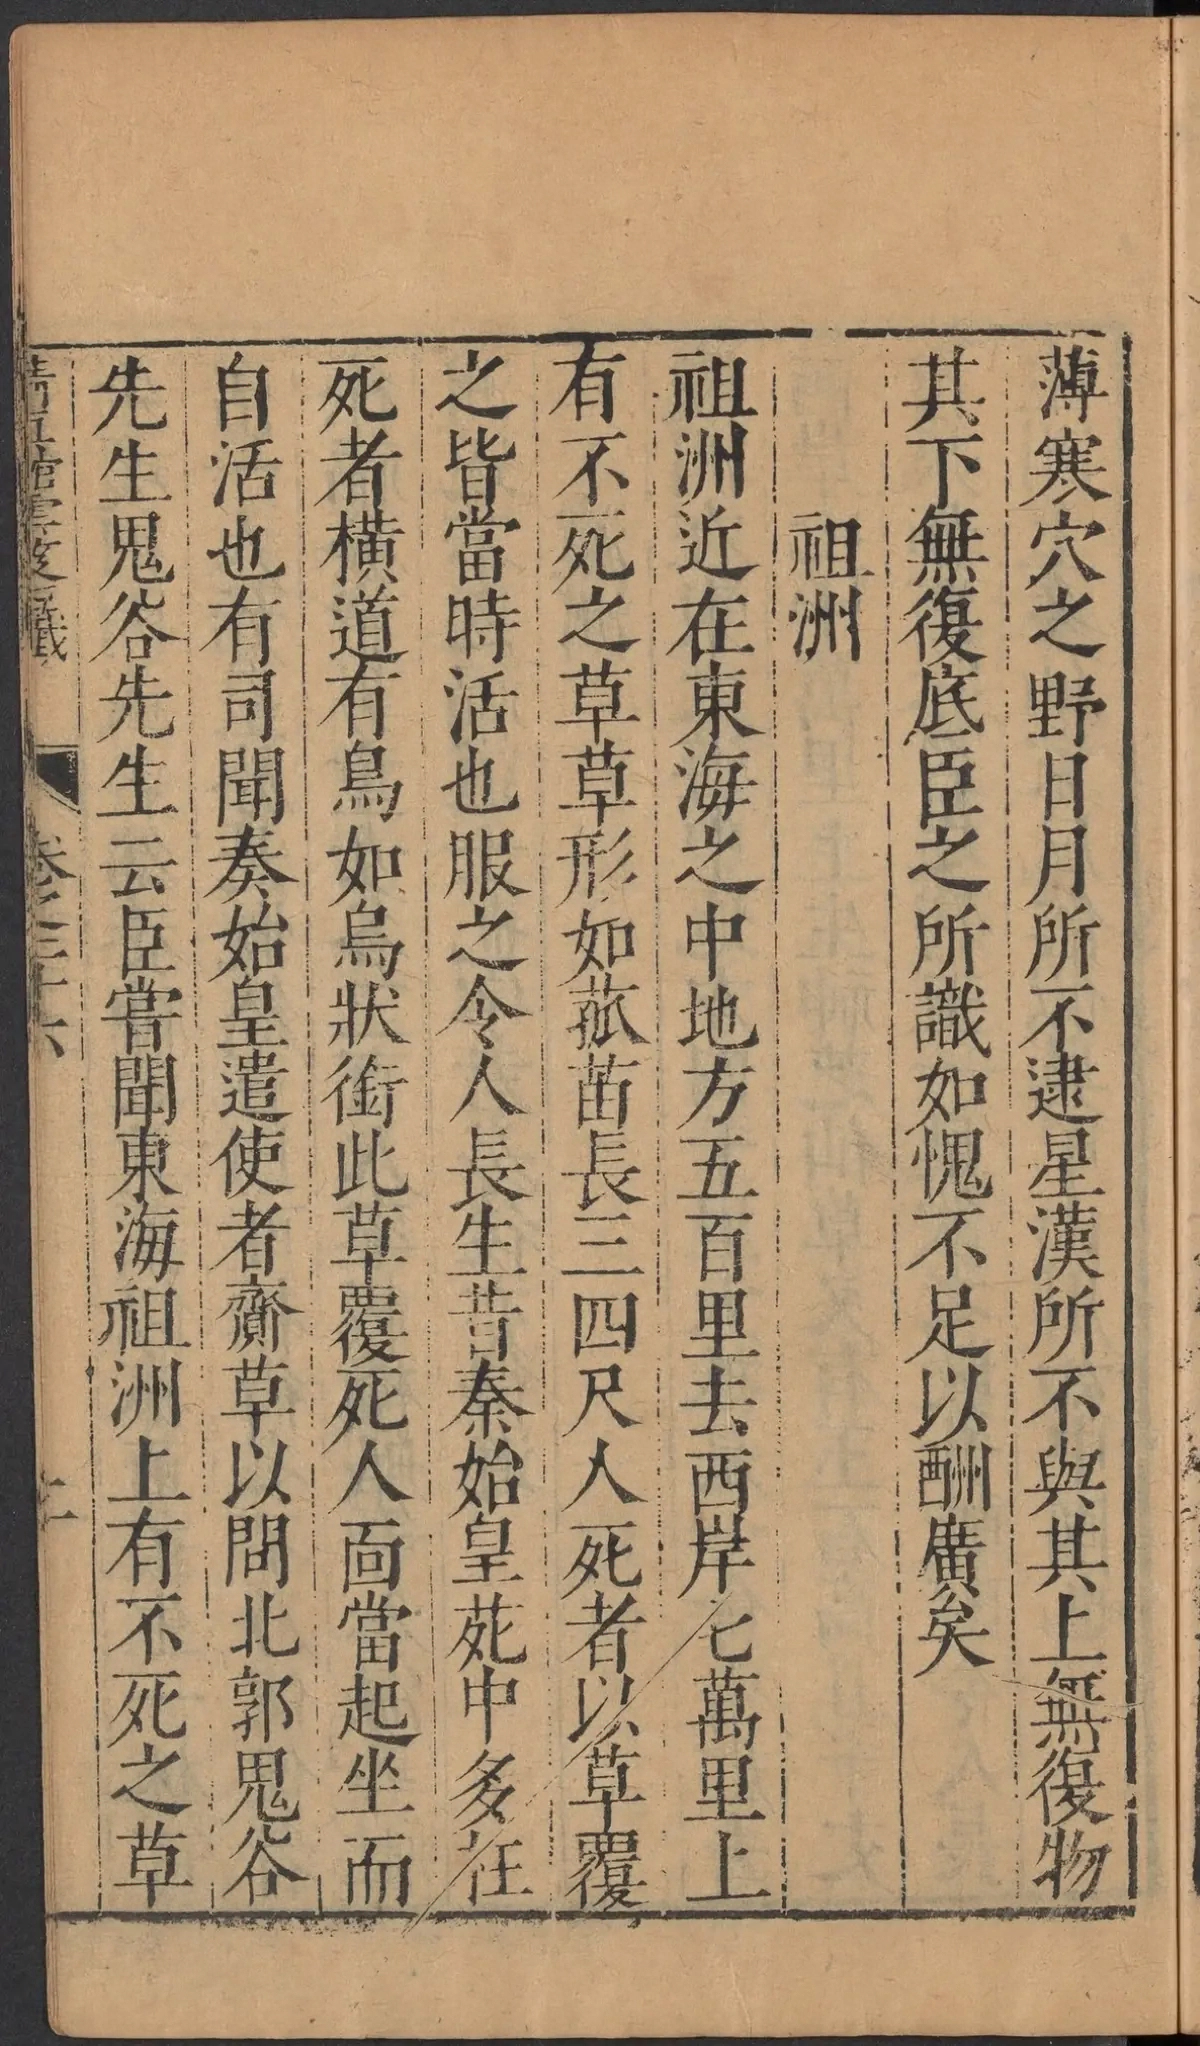 薄寒穴之野日月所不逮星漢所不與其上無復物
其下無復底臣之所識如愧不足以酬廣矣
祖洲
祖洲近在東海之中地方五百里去西岸七萬里上
有不死之草草形如菰苗長三四尺人死者以草覆
之皆當時活也服之令人長生昔秦始皇苑中多枉
死者橫道有鳥如烏狀銜此草覆死人面當起坐而
自活也有司聞奏始皇遣使者齎草以問北郭鬼谷
先生鬼谷先生云臣嘗聞東海祖洲上有不死之草
卷之二十六